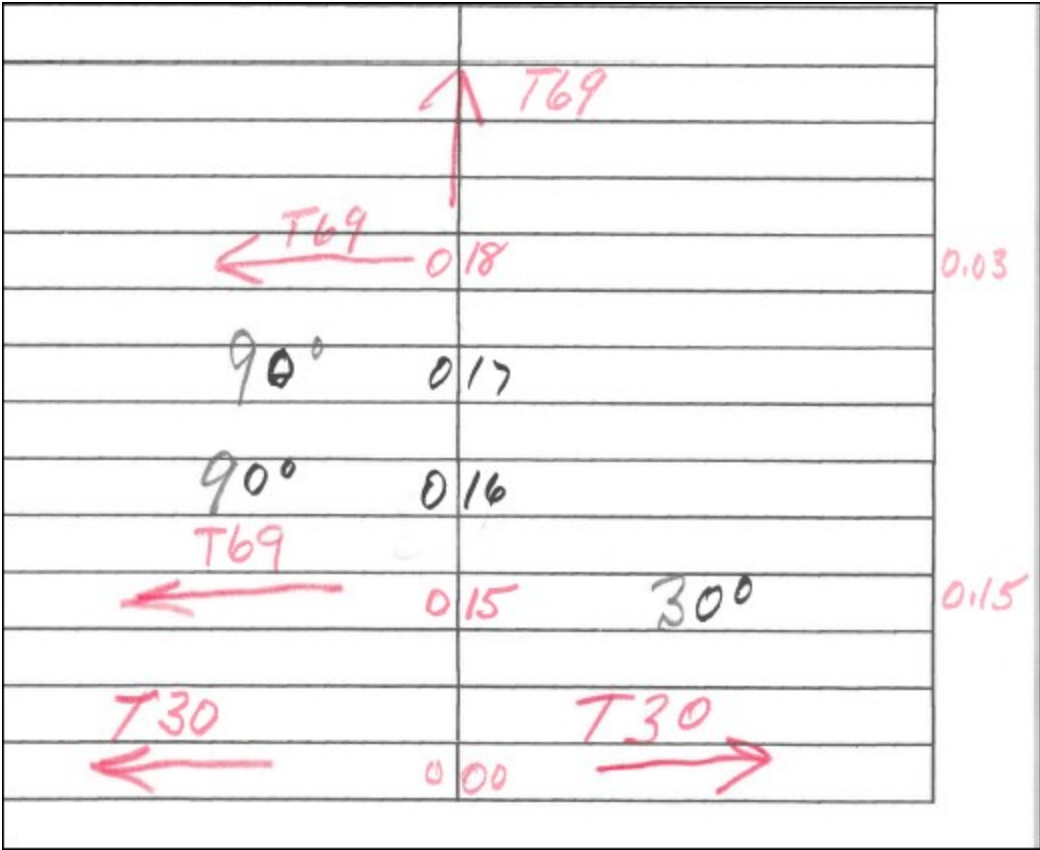 T69
T69
0 18 0.03
90° 0 17
90° 0 16
T69
0 15 30° 0.15
T30 T30
0 00